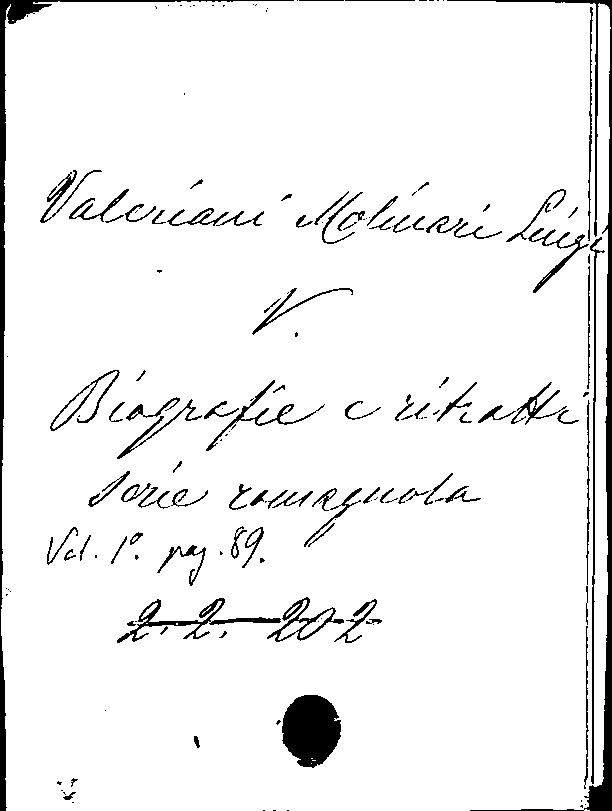 Valeriani Molinari Luigi
V.
Biografie e ritratti
serie romagnola
Vol. 1º. pag. 89.
2. 2. 202